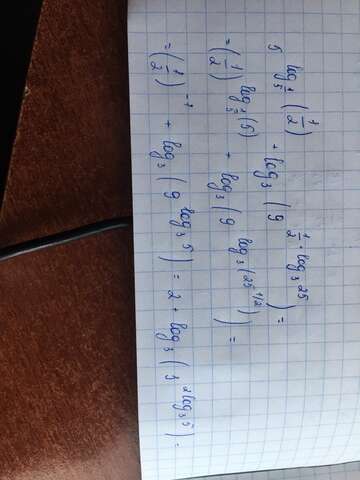 5^{log_{1/5}(1/2)} + log_3(9^{1/2 · log_3 25}) =
= (1/2)^{log_{1/5}(5)} + log_3(9^{log_3(25^{1/2})}) =
= (1/2)^{-1} + log_3(9^{log_3 5}) = 2 + log_3(3^{2log_3 5}) =